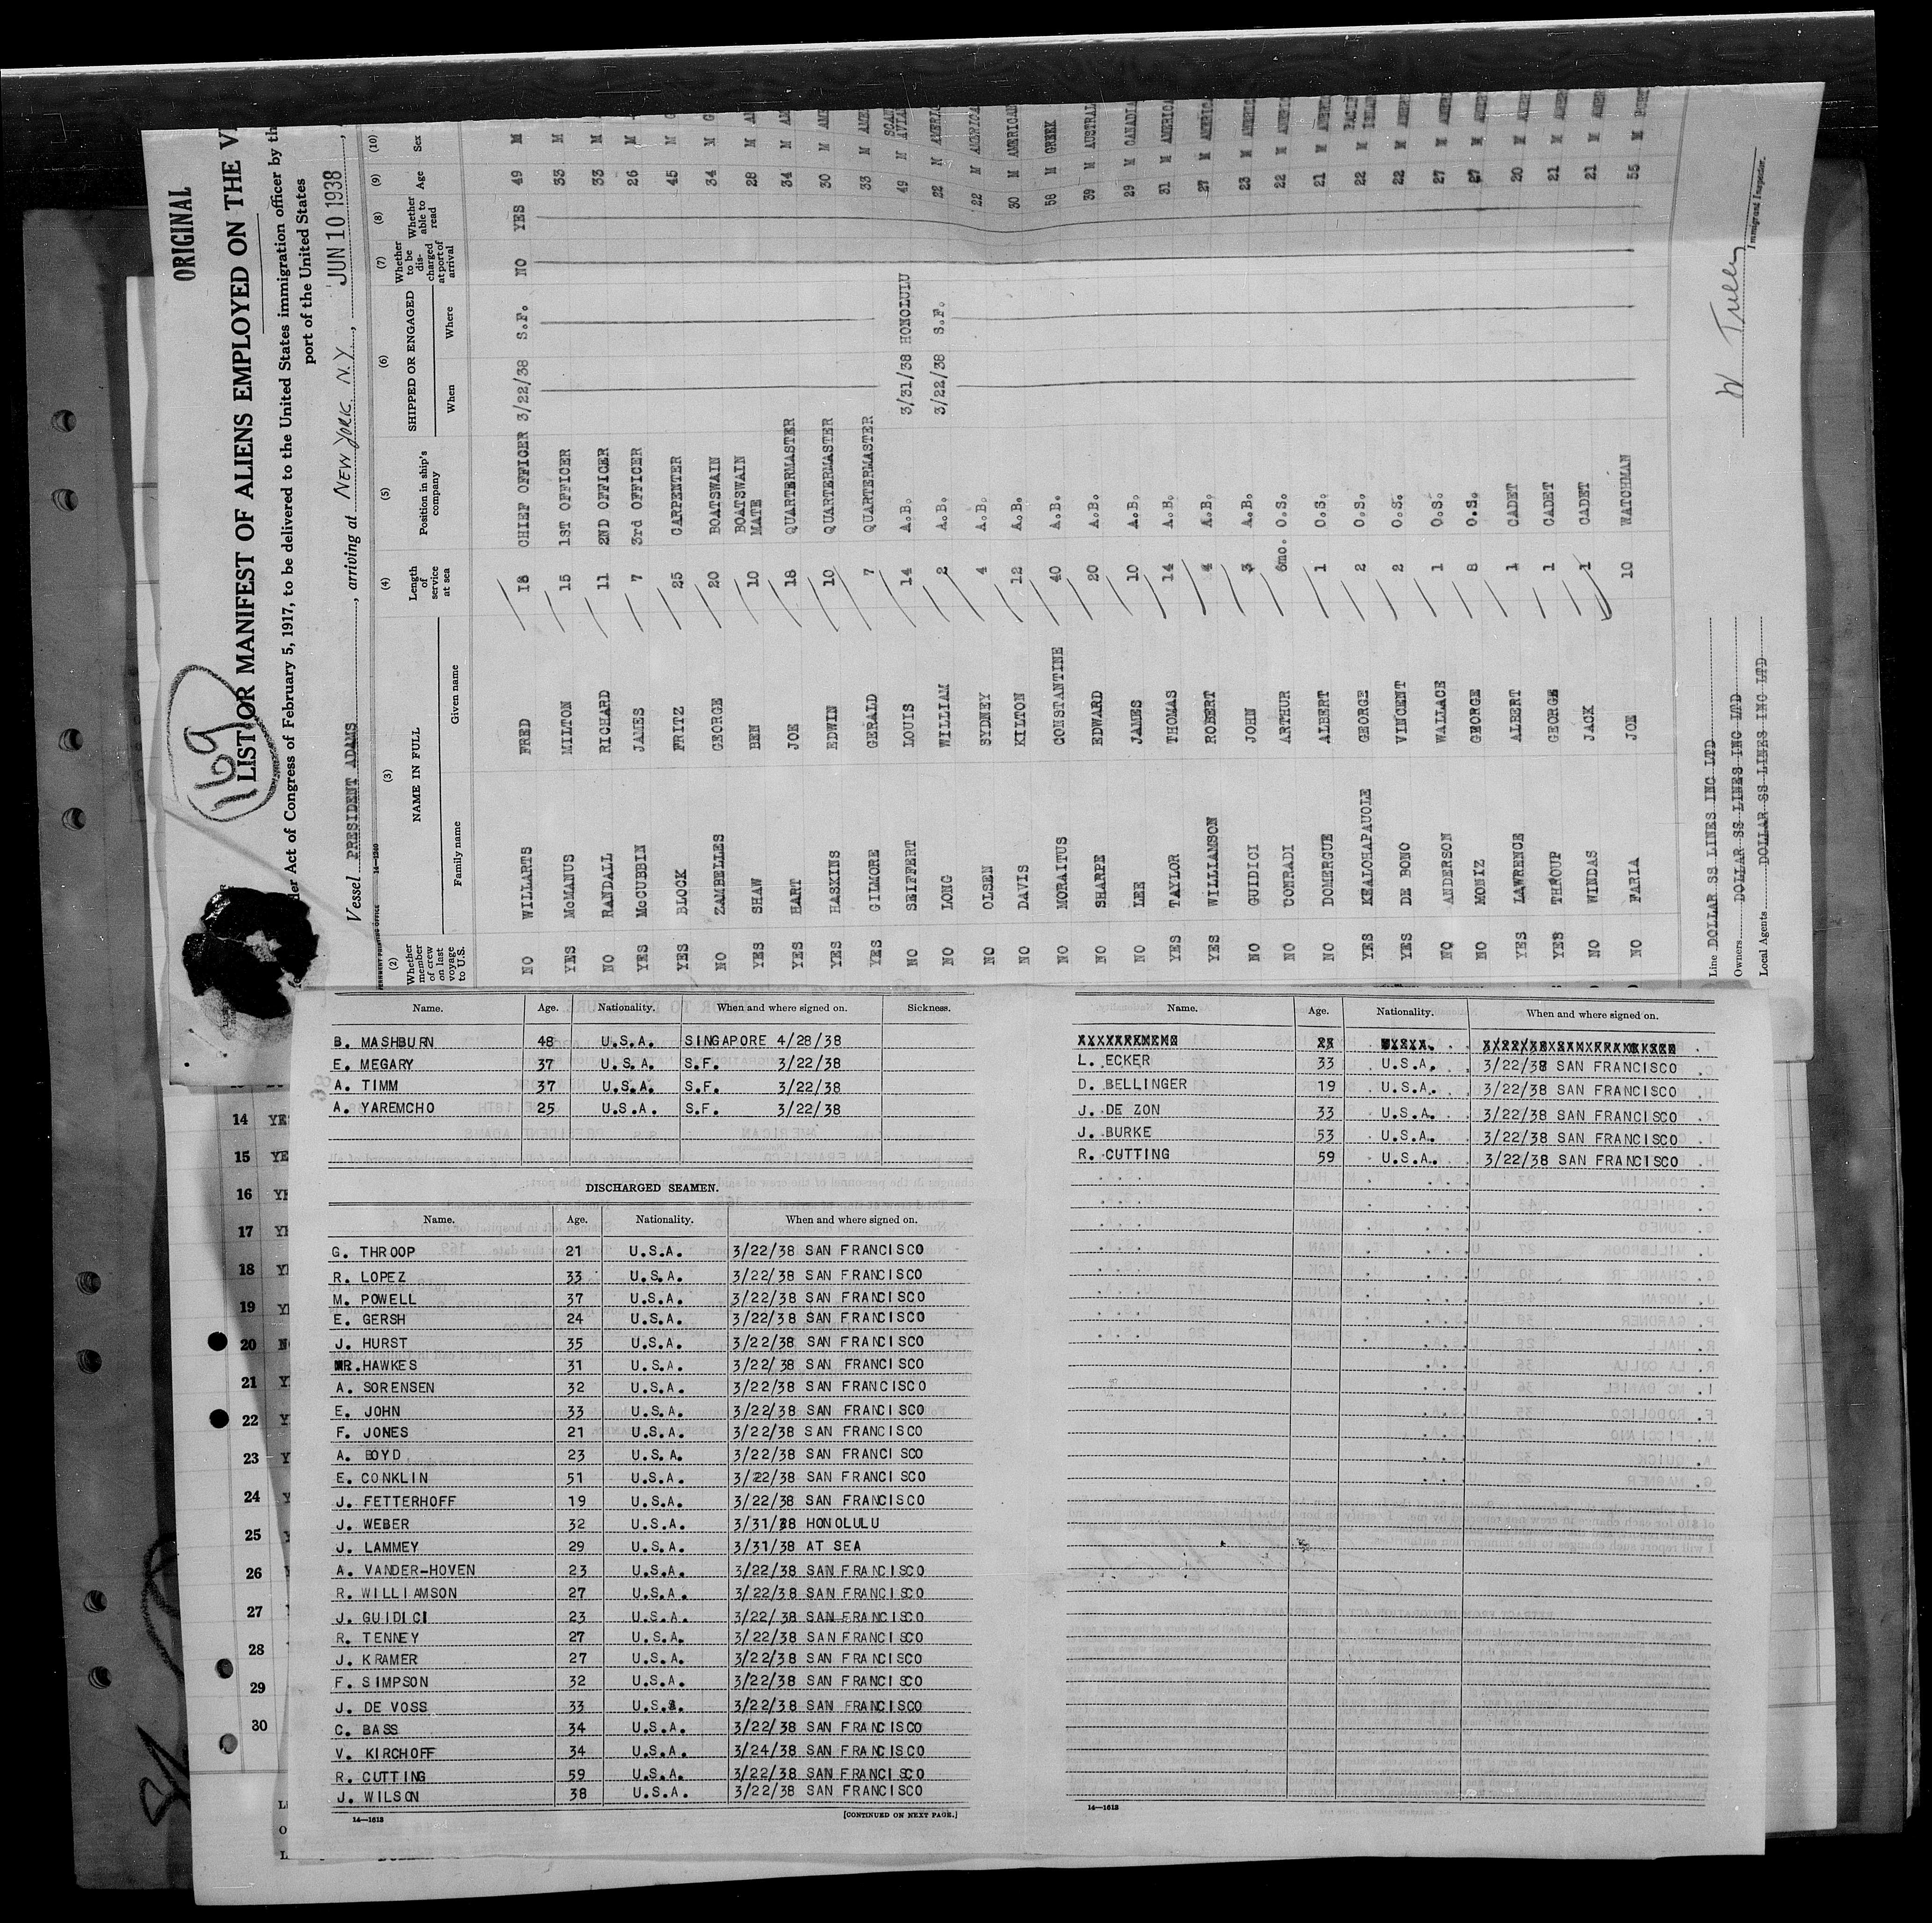 ORIGINAL
169
LIST OR MANIFEST OF ALIENS EMPLOYED ON THE
Act of Congress of February 5, 1917, to be delivered to the United States immigration officer by
port of the United States
Vessel PRESIDENT ADAMS, arriving at NEW YORK N.Y., JUN 10 1938
(2) (3) (4) (5) (6) (7) (8) (9) (10)
Whether member of crew on last voyage to U.S. NAME IN FULL Family name Given name Length of service at sea Position in ship's company SHIPPED OR ENGAGED When Where Whether to be discharged at port of arrival Whether able to read Age Sex
NO WILLARTS FRED 18 CHIEF OFFICER 3/22/38 S.F. NO YES 49 M
YES McMANUS MILTON 15 1ST OFFICER 33 M
NO RANDALL RICHARD 11 2ND OFFICER 33 M
YES McCUBBIN JAMES 7 3rd OFFICER 26 M
YES BLOCK FRITZ 25 CARPENTER 45 M
NO ZAMBELLES GEORGE 20 BOATSWAIN 34 M
YES SHAW BEN 10 BOATSWAIN MATE 28 M
YES HART JOE 18 QUARTERMASTER 34 M
YES HASKINS EDWIN 10 QUARTERMASTER 30 M
YES GILMORE GERALD 7 QUARTERMASTER 33 M
NO SEIFFERT LOUIS 14 A.B. 3/31/38 HONOLULU 49 M
NO LONG WILLIAM 2 A.B. 3/22/38 S.F. 22 M
NO OLSEN SYDNEY 4 A.B. 22 M
NO DAVIS KILTON 12 A.B. 30 M AMERICAN
NO MORAITUS CONSTANTINE 40 A.B. 58 M GREEK
NO SHARPE EDWARD 20 A.B. 39 M AUSTRAL
NO LEE JAMES 10 A.B. 29 M CANADIA
YES TAYLOR THOMAS 14 A.B. 31 M AMERICA
YES WILLIAMSON ROBERT 4 A.B. 27 M AMERICA
NO GUIDICI JOHN 3 A.B. 23 M AMERIC
NO CONRADI ARTHUR 6mo. O.S. 22 M AMERIC
NO DOMERGUE ALBERT 1 O.S. 21 M AMERI
YES KEALOHAPAUOLE GEORGE 2 O.S. 22 M
YES DE BONO VINCENT 2 O.S. 22 M AMERI
NO ANDERSON WALLACE 1 O.S. 27 M AMER
NO MONIZ GEORGE 8 O.S. 27 M AMER
YES LAWRENCE ALBERT 1 CADET 20 M AMER
YES THROUP GEORGE 1 CADET 21 M AMER
NO WINDAS JACK 1 CADET 21 M AMER
NO FARIA JOE 10 WATCHMAN 55 M PORT
Line DOLLAR SS LINES INC LTD
Owners DOLLAR SS LINES INC LTD
Local Agents DOLLAR SS LINES INC LTD
W Tully
Immigrant Inspector.
Name. Age. Nationality. When and where signed on. Sickness.
B. MASHBURN 48 U.S.A. SINGAPORE 4/28/38
E. MEGARY 37 U.S.A. S.F. 3/22/38
A. TIMM 37 U.S.A. S.F. 3/22/38
A. YAREMCHO 25 U.S.A. S.F. 3/22/38
DISCHARGED SEAMEN.
Name. Age. Nationality. When and where signed on.
G. THROOP 21 U.S.A. 3/22/38 SAN FRANCISCO
R. LOPEZ 33 U.S.A. 3/22/38 SAN FRANCISCO
M. POWELL 37 U.S.A. 3/22/38 SAN FRANCISCO
E. GERSH 24 U.S.A. 3/22/38 SAN FRANCISCO
J. HURST 35 U.S.A. 3/22/38 SAN FRANCISCO
R. HAWKES 31 U.S.A. 3/22/38 SAN FRANCISCO
A. SORENSEN 32 U.S.A. 3/22/38 SAN FRANCISCO
E. JOHN 33 U.S.A. 3/22/38 SAN FRANCISCO
F. JONES 21 U.S.A. 3/22/38 SAN FRANCISCO
A. BOYD 23 U.S.A. 3/22/38 SAN FRANCISCO
E. CONKLIN 51 U.S.A. 3/22/38 SAN FRANCISCO
J. FETTERHOFF 19 U.S.A. 3/22/38 SAN FRANCISCO
J. WEBER 32 U.S.A. 3/31/38 HONOLULU
J. LAMMEY 29 U.S.A. 3/31/38 AT SEA
A. VANDER-HOVEN 23 U.S.A. 3/22/38 SAN FRANCISCO
R. WILLIAMSON 27 U.S.A. 3/22/38 SAN FRANCISCO
J. GUIDICI 23 U.S.A. 3/22/38 SAN FRANCISCO
R. TENNEY 27 U.S.A. 3/22/38 SAN FRANCISCO
J. KRAMER 27 U.S.A. 3/22/38 SAN FRANCISCO
F. SIMPSON 32 U.S.A. 3/22/38 SAN FRANCISCO
J. DE VOSS 33 U.S.A. 3/22/38 SAN FRANCISCO
C. BASS 34 U.S.A. 3/22/38 SAN FRANCISCO
V. KIRCHOFF 34 U.S.A. 3/24/38 SAN FRANCISCO
R. CUTTING 59 U.S.A. 3/22/38 SAN FRANCISCO
J. WILSON 38 U.S.A. 3/22/38 SAN FRANCISCO
14—1613 [CONTINUED ON NEXT PAGE.]
Name. Age. Nationality. When and where signed on.
L. ECKER 33 U.S.A. 3/22/38 SAN FRANCISCO
D. BELLINGER 19 U.S.A. 3/22/38 SAN FRANCISCO
J. DE ZON 33 U.S.A. 3/22/38 SAN FRANCISCO
J. BURKE 53 U.S.A. 3/22/38 SAN FRANCISCO
R. CUTTING 59 U.S.A. 3/22/38 SAN FRANCISCO
14—1613
14 YES
15 YE
16 YE
17 YE
18 YE
19 YE
20 NO
21 Y
22 Y
23 Y
24 Y
25
26
27
28
29
30